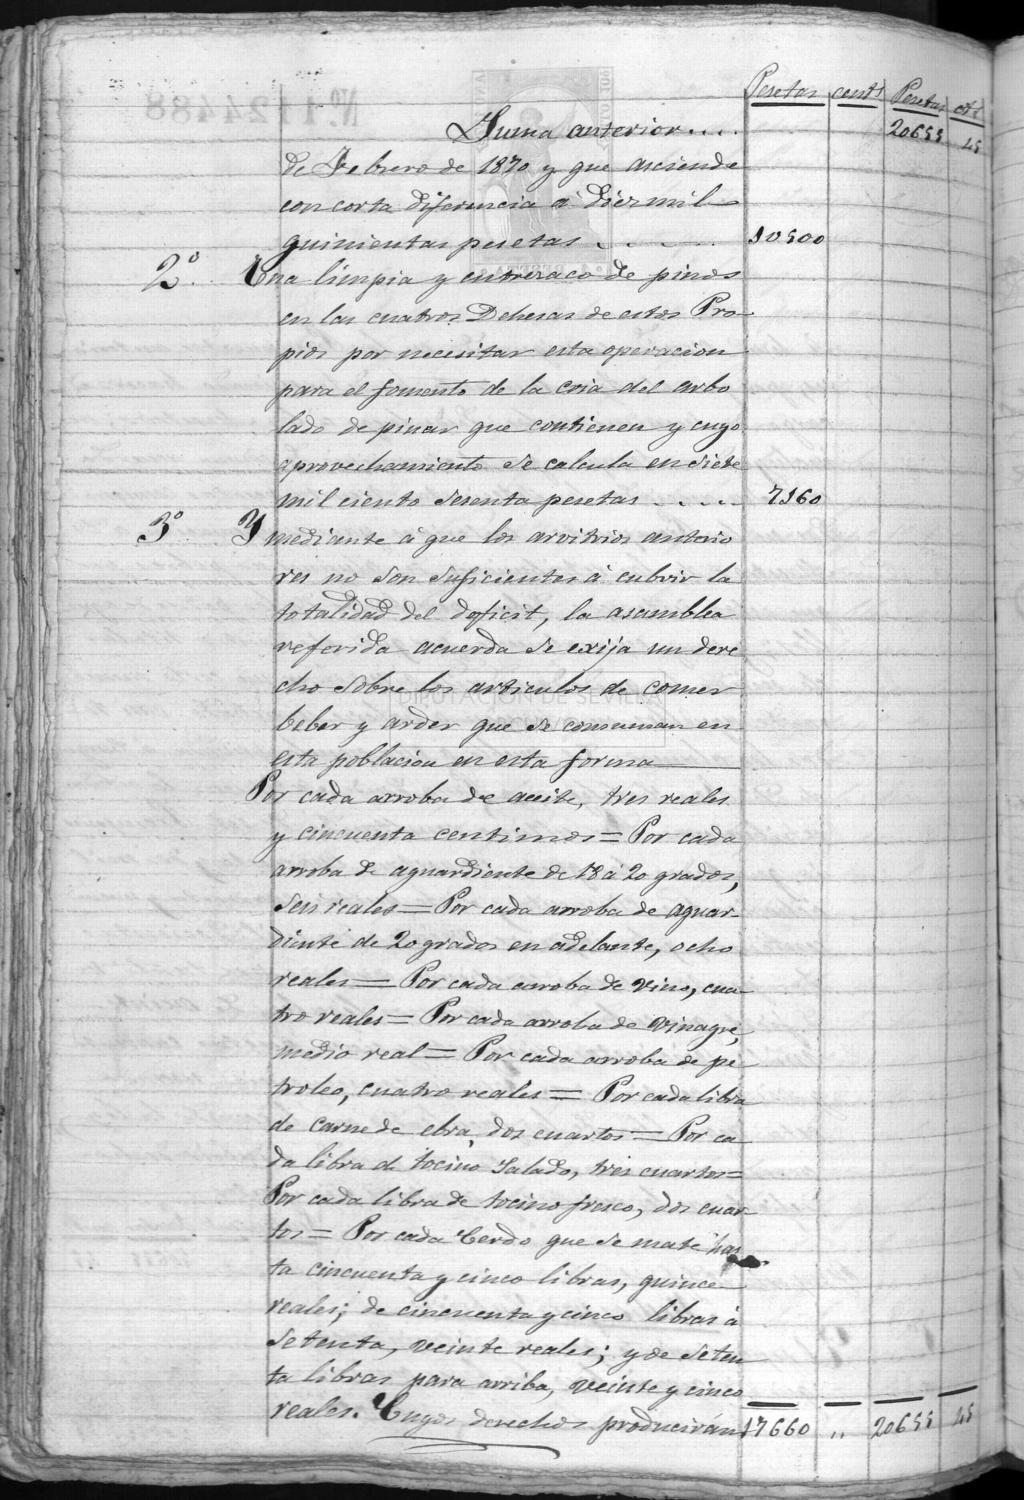 Pesetas cents Pesetas cts
Nº 1124488
Suma anterior.... 20655 45
de Febrero de 1870 y que asciende
con corta diferencia á Diez mil
quinientas pesetas . . . . 10500
2º. Una limpia y entresaco de pinos
en las cuatros Dehesas de estos Pro-
pios por necesitar esta operacion
para el fomento de la cria del arbo
lado de pinar que contienen y cuyo
aprovechamiento se calcula en siete
mil ciento sesenta pesetas . . . . 7160
3º Y mediante á que los arvitrios anterio
res no son suficientes á cubrir la
totalidad del deficit, la asamblea
referida acuerda se exija un dere
cho sobre los articulos de comer
beber y arder que se consuman en
DIPUTACION DE SEVILLA
esta poblacion en esta forma
Por cada arroba de aceite, tres reales
y cincuenta centimos = Por cada
arroba de aguardiente de 18 á 20 grados,
seis reales = Por cada arroba de aguar-
diente de 20 grados en adelante, ocho
reales = Por cada arroba de vino, cua-
tro reales = Por cada arroba de vinagre,
medio real = Por cada arroba de pe-
troleo, cuatro reales = Por cada libra
de carne de ebra, dos cuartos = Por ca-
da libra de tocino salado, tres cuartos =
Por cada libra de tocino fresco, dos cuar-
tos = Por cada Cerdo que se mate has
ta cincuenta y cinco libras, quince
reales; de cincuenta y cinco libras á
setenta, veinte reales; y de seten
ta libras para arriba, veinte y cinco
reales. Cuyos derechos produciran 17660 ,, 20655 45